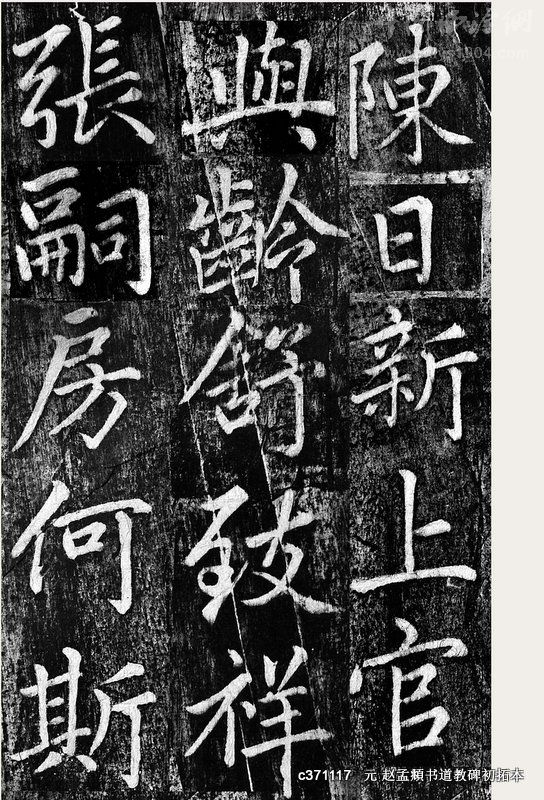 陳日新上官
與齡舒致祥
張嗣房何斯
c371117 元 赵孟頫书道教碑初拓本